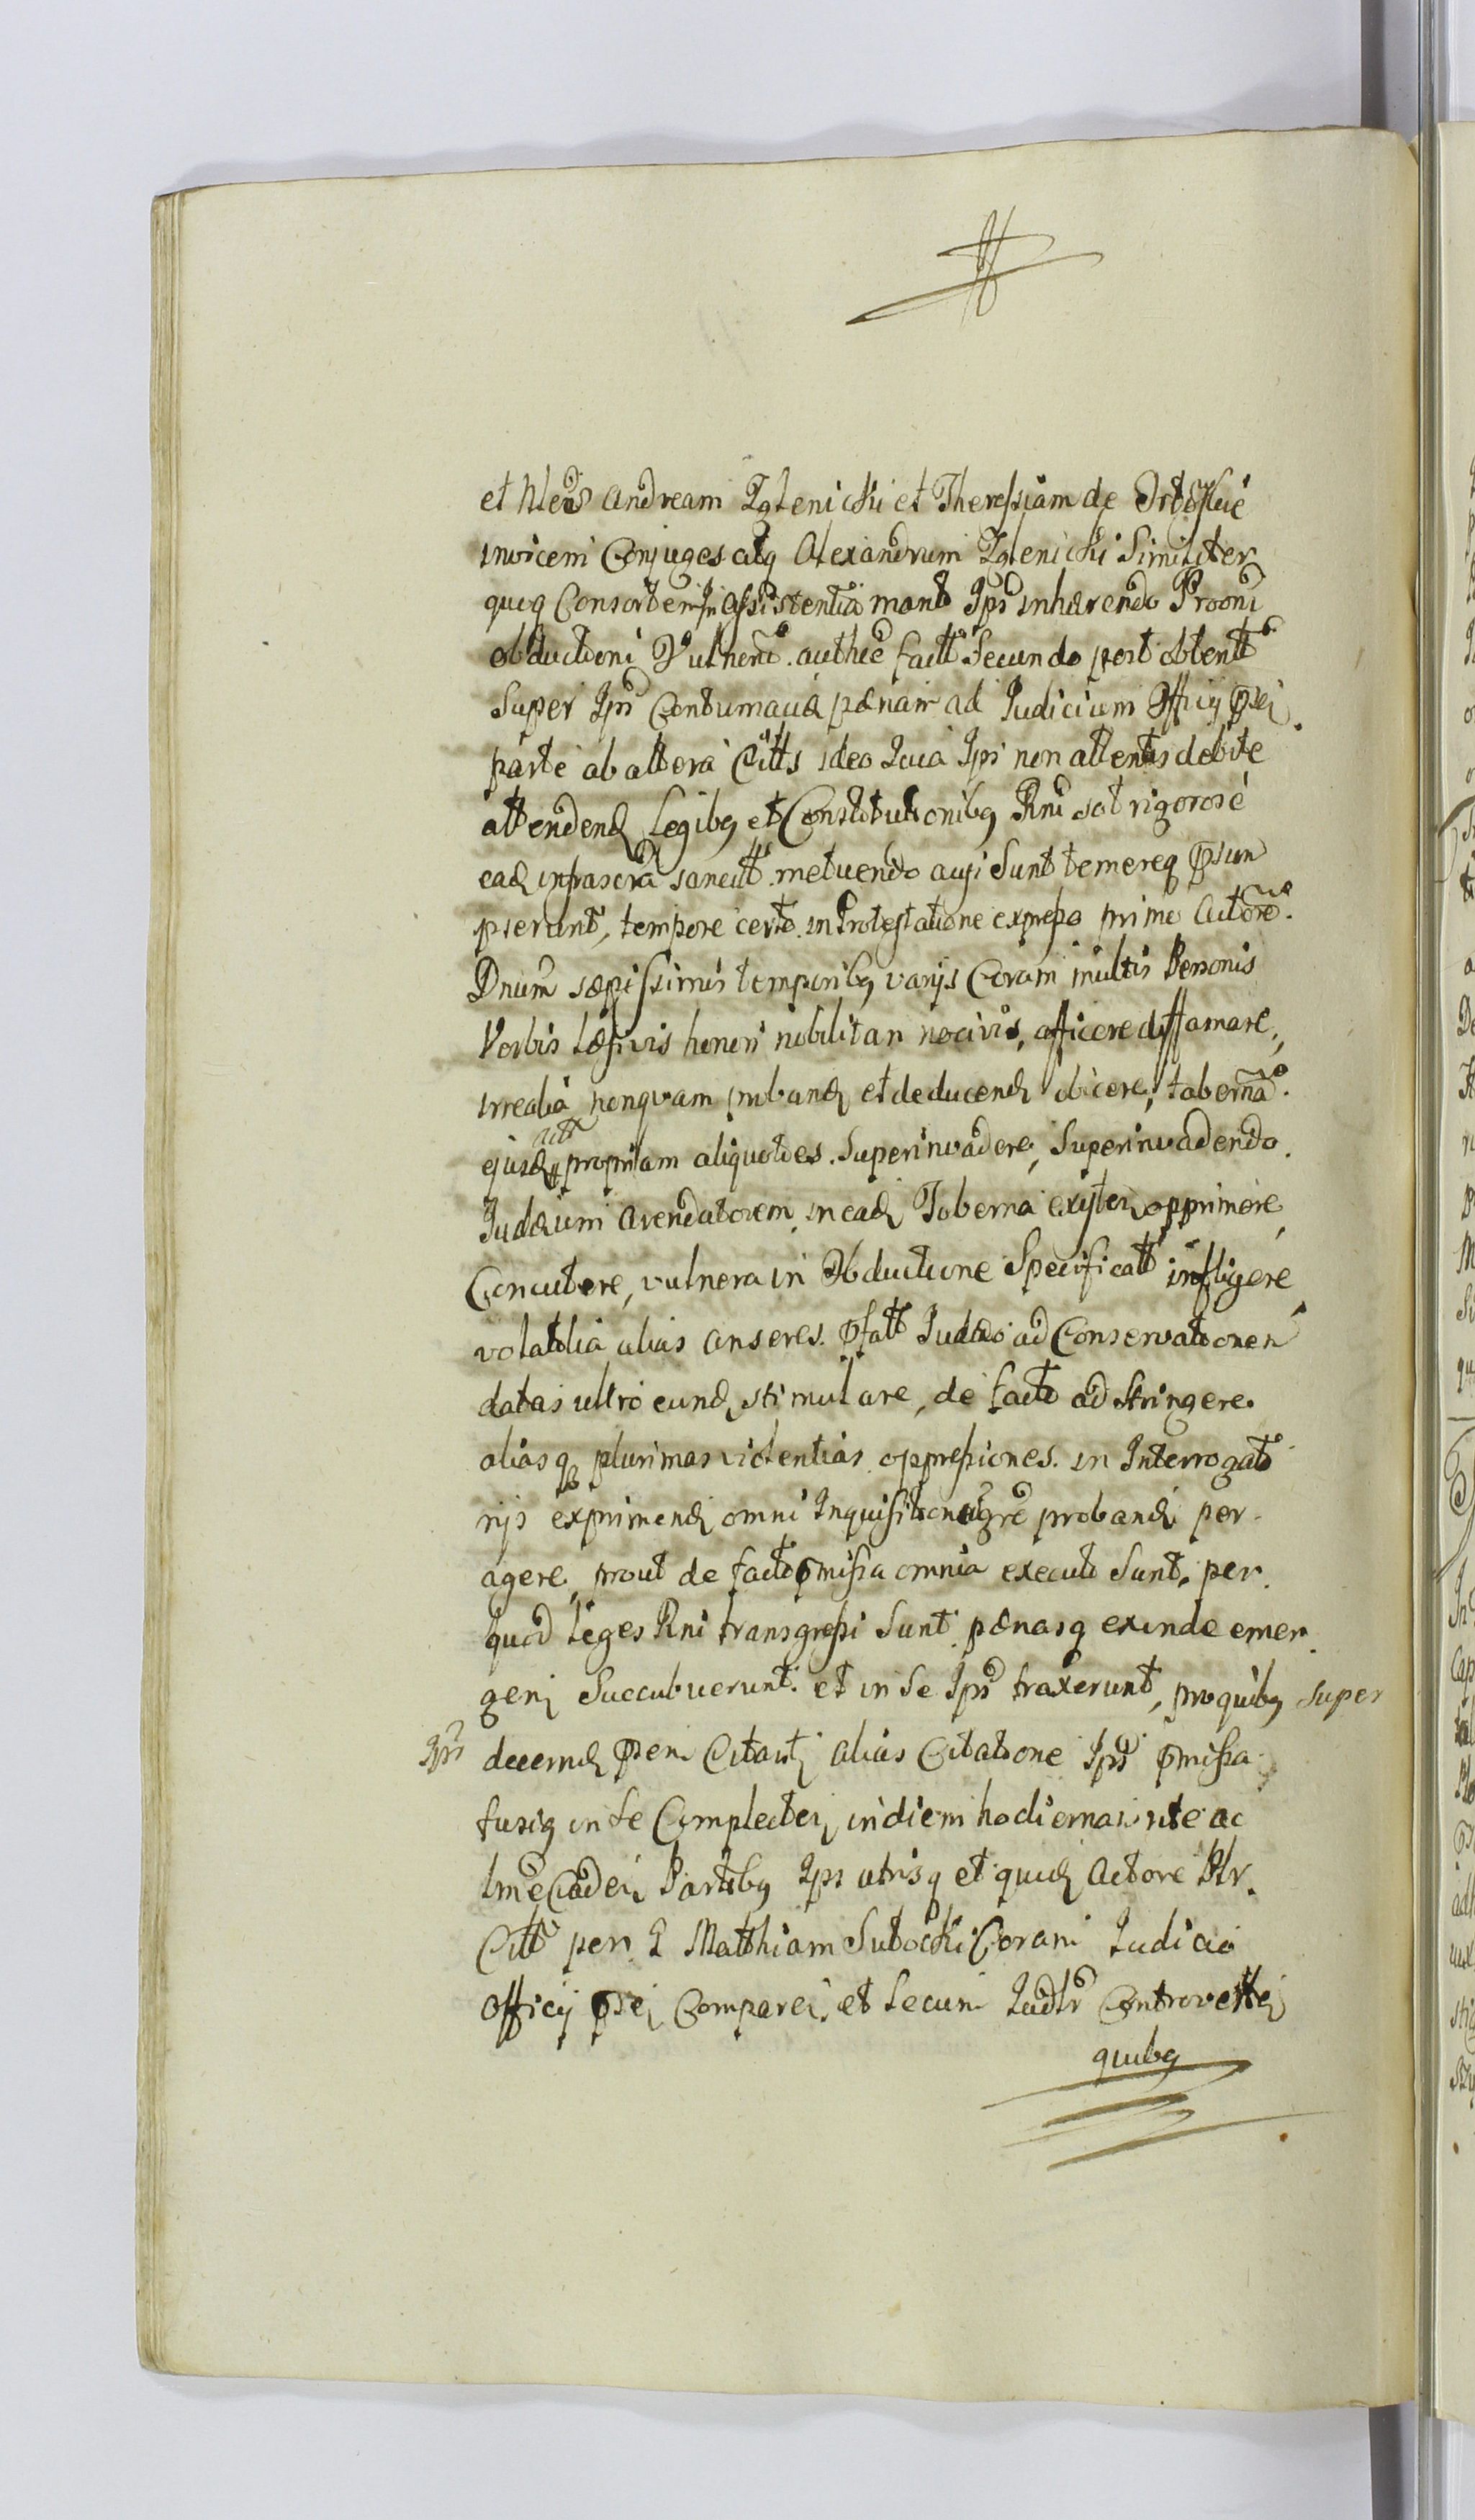 et Andream Zglenicki et Theressiam de
invicem Conjuges atq Alexandrum Zglenicki Similiter
queq Consortem in Assistentia Ips inhærendo
obductioni Vulnerū authce factt Secundo post obtentt
Super Ips Contumaciæ pænam ad Judicium Officij
parte ab altera Citts ideo Quia Ipsi non attentis debite
attendend Legibq et Constitutionibq Rni sat rigorose
ead infrascra sancitt metuendo ausi Sunt temereq
pserunt, tempore certo in Protestatione expresso primo Actore
Dnum sæpissimis temporibq varijs Coram multis Personis
Verbis Læsivis honori nobilitari nocivis, afficere diffamare,
irrealia nonqvam proband et deducend obicere, tabernā
ejusd actt propriam aliquoties Superinvadere, Superinvadendo
Judæum Arendatorem in ead Taberna existen opprimere
Concutere, vulnera in Obductione Specificatt infligere
volatilia alias anseres pfatt Judæo ad Conservationem
datas ultro eund stimulare, de facto adstringere
aliasq plurimas violentias oppressiones in Interrogato
rijs exprimend omni Inquisitone proband per
agere prout de facto pmissa omnia executi Sunt, per
quod Leges Rni transgressi Sunt pænasq exinde emer
gen Succubuerunt et in Se Ips traxerunt, pro quibq super
Ips decernd pen Citati alias Citatione Ips pmissa
fusiq in se Complecten in diem hodiernam rite ac
lme Caden Partibq Ips utrisq et quid Actore
Citt per G Matthiam Sutocki Coram Judicio
Officij psti Comparen et Secum Controverten
quibq